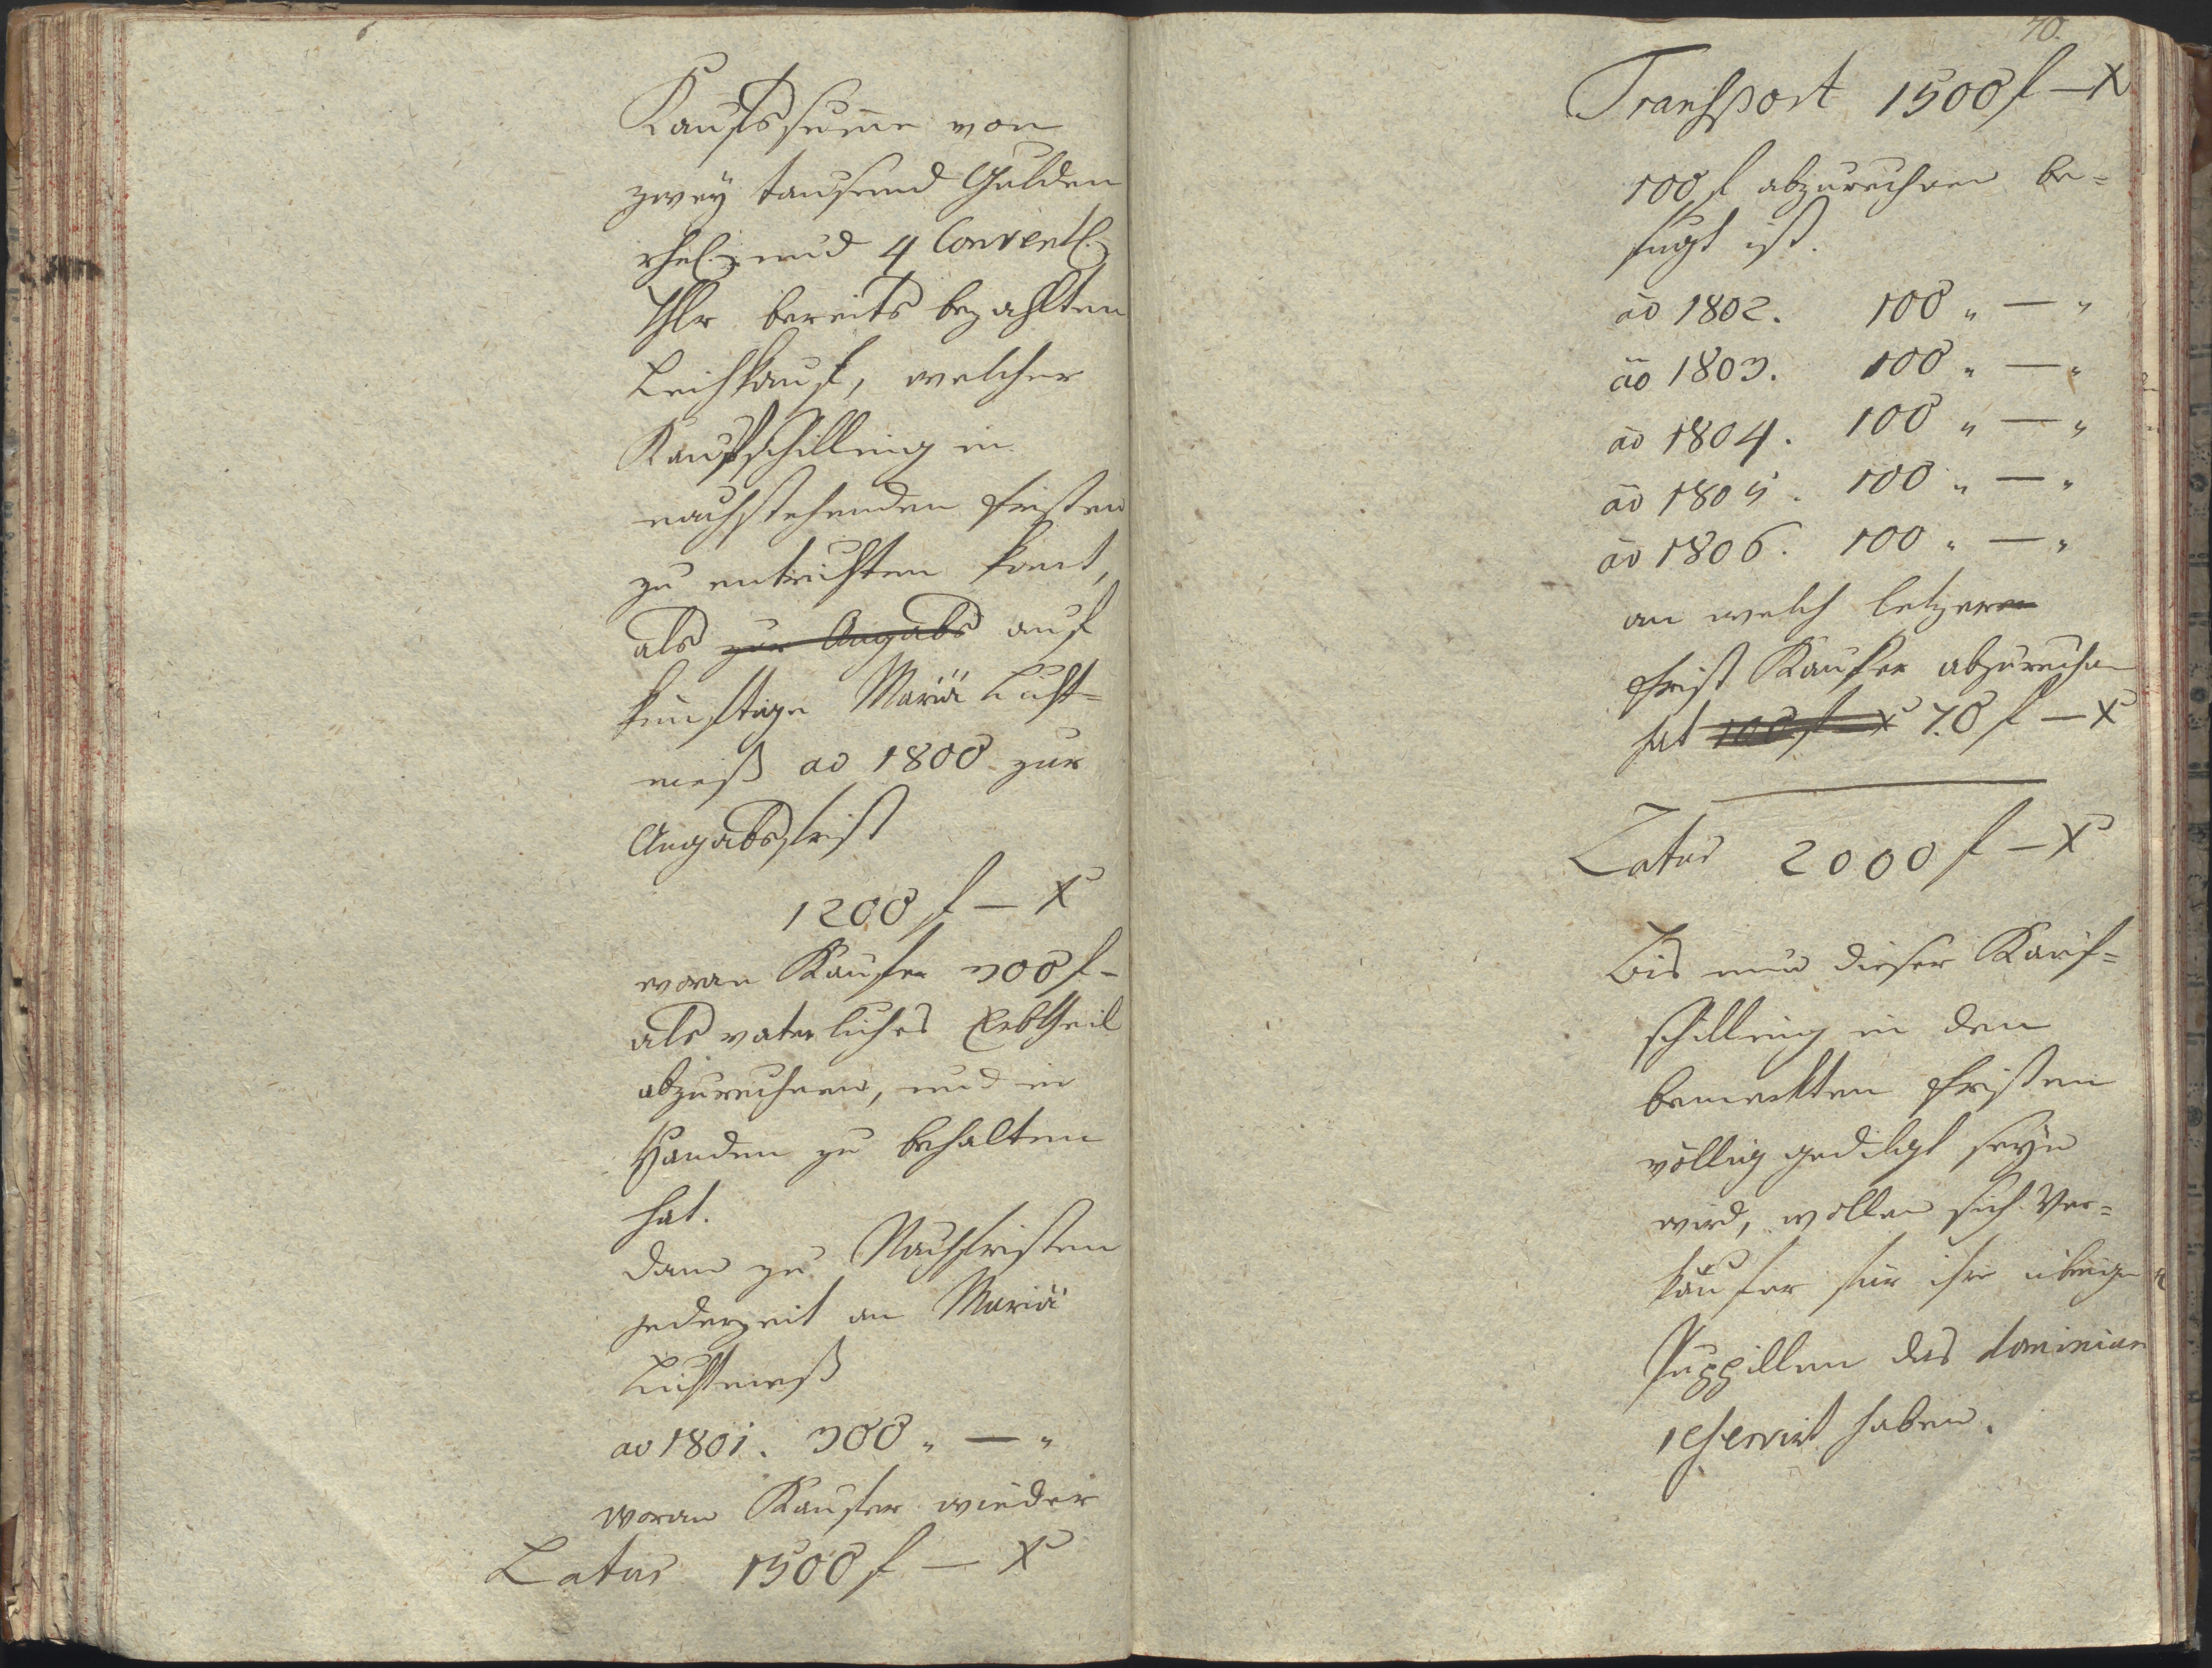 Kaufssum̄e von
zwey tausend Gulden
rhel. und 4 Conventl.
Thlr bereits bezahlten
Leihkauf, welcher
Kaufschilling in
nachstehenden fristen
zu entrichten kom̄t,
als zur Angabs auf
künftige Mariä Licht=
meß ao 1800 zur
Angabsfrist
1200 f — X
woran Kaufer 300 f —
als vaterliches Erbtheil
abzurechnen, und in
Handen zu behalten
hat.
dann zu Nachfristen
jederzeit an Mariä
Lichtmeß
ao 1801. 300 „ — „
woran Kaufer wieder
Latus 1500 f — X
70.
Transport 1500 f — X
100 f abzurechnen be=
fugt ist.
ao 1802. 100 „ — „
ao 1803. 100 „ — „
ao 1804. 100 „ — „
ao 1805. 100 „ — „
ao 1806. 100 „ — „
an welch letzeren
frist Kaufer abzurechen
hat 100 f — X 70 f — X
Latus 2000 f — X
Bis nun dieser Kauf=
schilling in den
bemerkten fristen
völlig gedilgt seyn
wird, wollen sich Ver=
käufer für ihre übrige
Puppillen das dominium
reservirt haben.